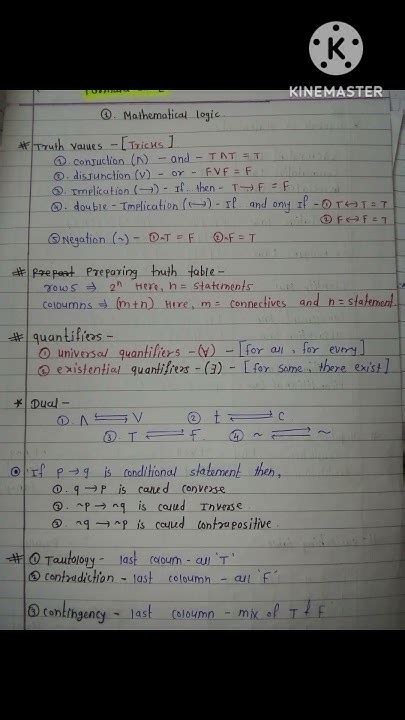 KINEMASTER
① Mathematical logic
# Truth values - [Tricks]
① conjuction (∧) - and - T∧T = T
② disjunction (∨) - or - F∨F = F
③ Implication (→) - If.. then - T→F = F
④ double - Implication (↔) - If and only If - ① T↔T = T
② F↔F = T
⑤ Negation (~) - ① ~T = F ② ~F = T
# Prepart Preparing truth table -
rows ⇒ 2ⁿ Here, n = statements
coloumns ⇒ (m+n) Here, m = connectives and n = statement.
# quantifiers -
① universal quantifiers - (∀) - [for all, for every]
② existential quantifiers - (∃) - [for some, there exist]
* Dual -
① ∧ ⇌ ∨ ② t ⇌ c
③ T ⇌ F ④ ~ ⇌ ~
⊙ If p → q is conditional statement then,
① q → p is called converse
② ~p → ~q is called Inverse
③ ~q → ~p is called contrapositive.
# ① Tautology - last coloum - all 'T'
② contradiction - last coloumn - all 'F'
③ contingency - last coloumn - mix of T & F